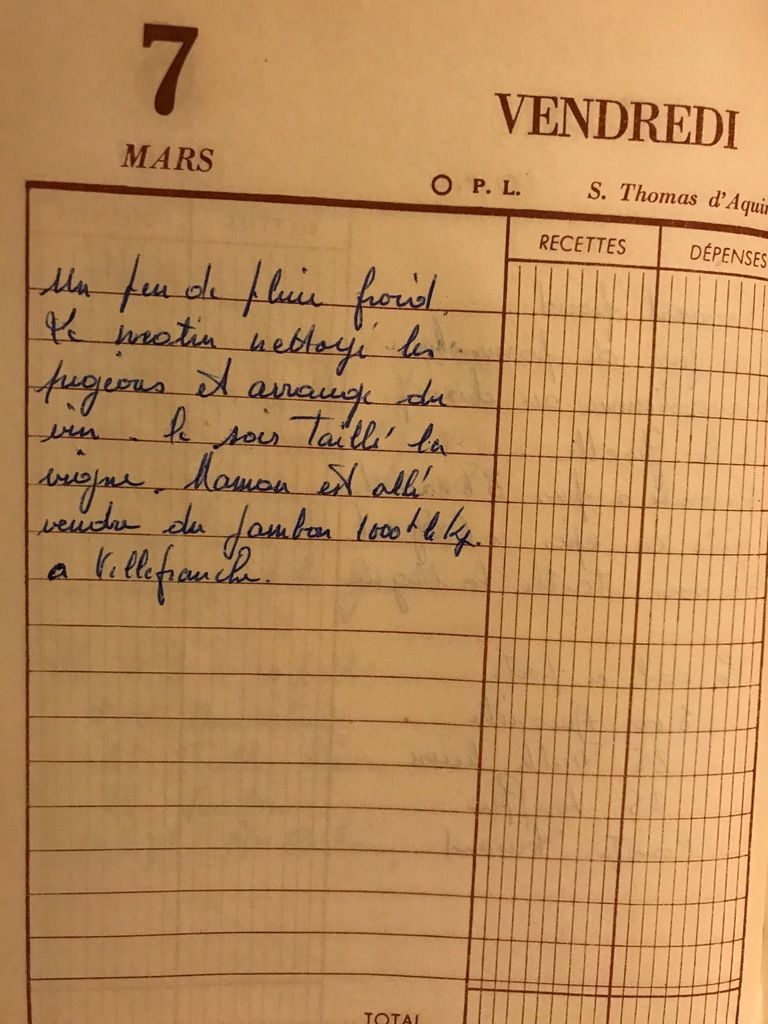 7
MARS
VENDREDI
P. L. S. Thomas d'Aquin
RECETTES DÉPENSES
Un peu de pluie froid.
Le matin nettoyé les
pigeons et arrangé du
vin. le soir Taillé la
vigne. Maman est allé
vendre du jambon 1000f le Kg.
a Villefranche.
TOTAL